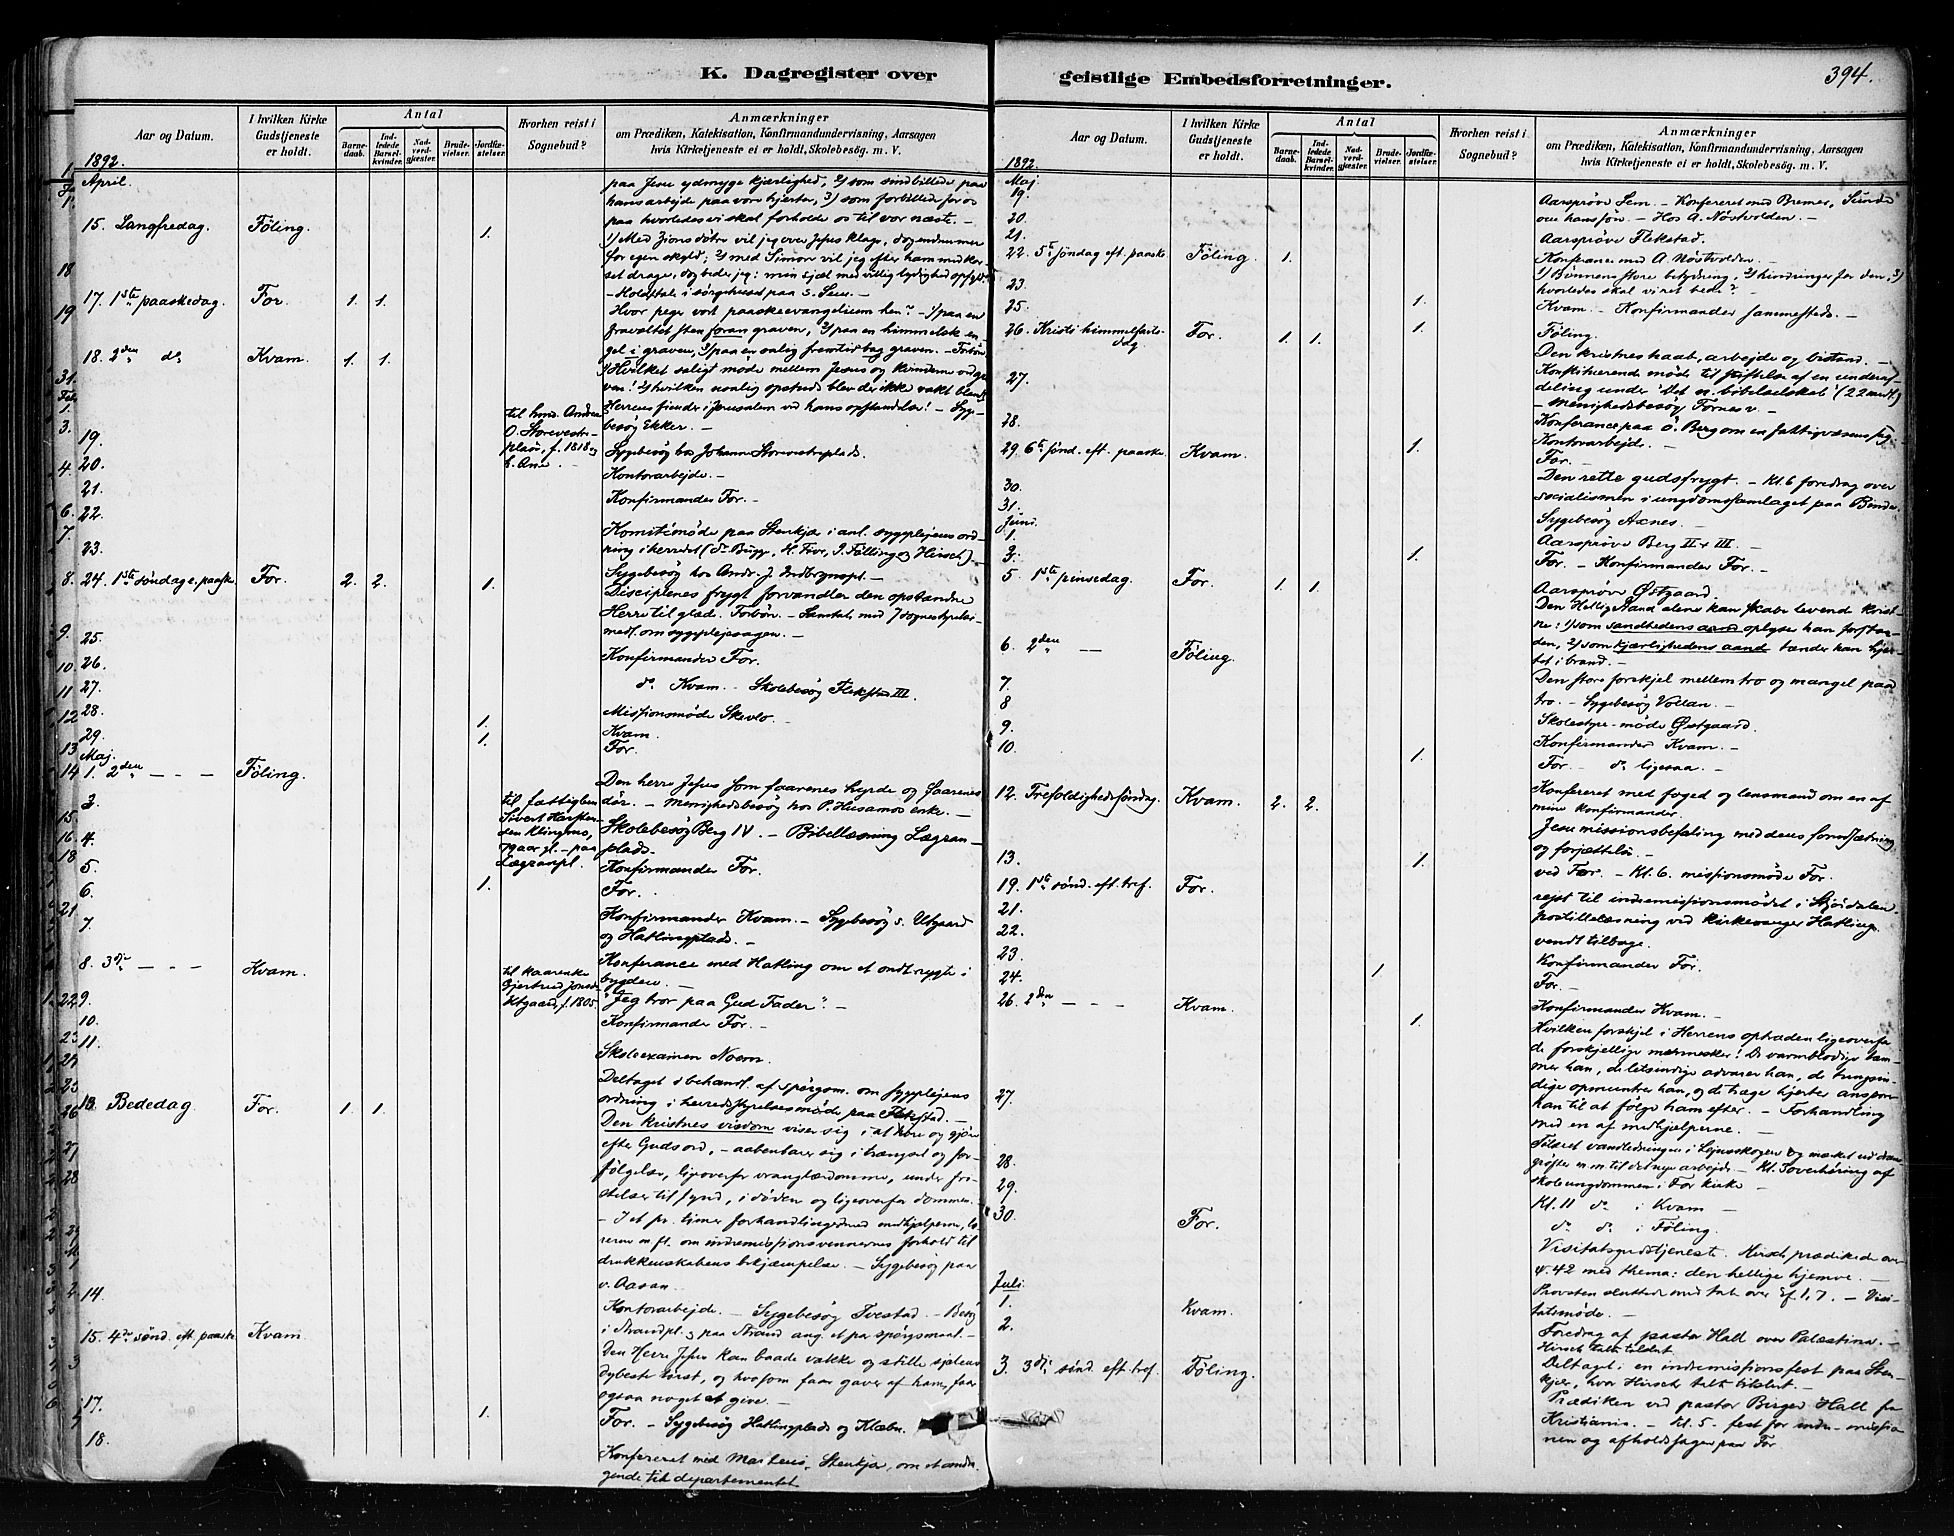 K. Dagregister over
Aar og Datum.
I hvilken Kirke Gudstjeneste er holdt.
Antal
Barnedaab.
Indledede Barselkvinder.
Nadverdgjester.
Brudevielser.
Jordfæstelser.
Hvorhen reist i Sognebud?
Anmærkninger
om Prædiken, Katekisation, Konfirmandundervisning, Aarsagen
hvis Kirketjeneste ei er holdt, Skolebesög. m. V.
1892.
April.
paa Jesu ydmyge kjærlighed, 2) som sindbillede paa
hans arbejde paa vore hjerter, 3) som forbillede for os
paa hvorledes vi skal forholde os til vor næste. –
15. Langfredag. Føling. 1.
1) Med Zions døtre vil jeg over Jesus klage, dog end mer
for egen skyld; 2) med Simon vil jeg efter ham mit kor-
set drage, dog beder jeg: min sjæl med villig lydighed opfyld
17. 1ste paaskedag. For. 1. 1.
Hvor peger vort paaskeevangelium hen? – 1) paa en
fravæltet sten foran graven, 2) paa en himmelsk en-
18. 2den do Kvam. 1. 1.
gel i graven, 3) paa en salig fremtid bag graven. – Forbön
1) Hvilket saligt møde mellem Jesus og kvinderne ved gra-
ven! 2) hvilken uenlig opstands blev der ikke vakt blandt
Herrens fiender i Jerusalem ved hans opstandelse! – Syge-
besög Ekker. –
19.
Sygebesög hos Johan Storvestreplads.
20. Kontorarbejde. –
21. Konfirmander For. –
22. Komitémøde paa Stenkjær i anl. sygeplejens ord-
23. Sygebesög hos Andr. J.
24. 1ste søndag e. paaske. For. 2. 2. 1.
Disciplenes frygt forvandler den opstandne
Herre til glæde. Forbön. – Samtale med
medl. om sygeplejesagen. –
25. Konfirmander For.
26. do Kvam. – Skolebesög Flekstad III.
27. Missionsmøde Skevlo. –
28. 1. Kvam.
29. 1. For.
Maj.
1. 2den – – – Føling.
Den herre Jesus som faarenes hyrde og faarenes
dør. – Menighedsbesög hos P. Husamos enke. –
3. Skolebesög Berg IV. – Bibellæsning Lægran-
plads.
4. Konfirmander For.
5.
6. 1. For.
7. Konfirmander Kvam. – Sygebesög s. Utgaard
og Hatlingplads. –
8. 3die – – – Kvam.
Konferance med Hatling om et ondt rygte i
bygden. –
9. "Jeg tror paa Gud Fader". –
10. Konfirmander For. –
11. Skoleexamen Noem.
Deltaget i behandl. af spørgsm. om sygeplejens
ordning i herredstyrelsesmøde paa Flekstad. –
13. Bededag For. 1. 1.
Den kristnes visdom viser sig i at høre og gjøre
efter Guds ord, – aabenbarer sig i trængsel og for-
følgelse, ligeoverfor vranglærdomme, under fri-
stelser til synd, i døden og ligeoverfor dommen.
– I et pr. timer forhandlinger med medhjelperne, læ-
rerne m. fl. om indremissionsvennernes forhold til
drukkenskabens bekjæmpelse. – Sygebesög paa
v. Aasan.
14. Kontorarbejde. – Sygebesög Tvestad. –
15. 4de sønd. eft. paaske Kvam.
i Strandpl. og paa Strand ang. et par spörgsmaal. –
Den Herre Jesus kan baade vække og stille sjælens
dybeste tørst, og hvo som faar gaver af ham, faar
ogsaa noget at give. –
17. 1. For. – Sygebesög Hatlingplads og Klæbu.
18. Konferet med Markus, Stenkjær, om et andra-
gende til departementet.
geistlige Embedsforretninger.
394.
Aar og Datum.
I hvilken Kirke Gudstjeneste er holdt.
Antal
Barnedaab.
Indledede Barselkvinder.
Nadverdgjester.
Brudevielser.
Jordfæstelser.
Hvorhen reist i Sognebud?
Anmærkninger
om Prædiken, Katekisation, Konfirmandundervisning, Aarsagen
hvis Kirketjeneste ei er holdt, Skolebesög. m. V.
1892.
Maj.
19. Aarsprøve Sem. – Konfereret med Bremer, Sunde
over hans søn. – Hos A. Nöstvolden. –
20. Aarsprøve Flekstad.
21. Konferance med A. Nöstvolden. –
22. 5te søndag eft. paaske Føling. 1.
1) Bønnens store betydning, 2) hindringer for den, 3)
hvorledes skal vi ret bede? –
23. Kvam. – Konfirmander sammesteds. –
25. 1. Føling.
26. Kristi himmelfartsdag For. 1. 1. 1.
Den kristnes haab, arbejde og bistand. –
27. Konstituerende møde til stiftelse af en underaf-
deling under "Det n. bibelselskab" (22 medl.)
– Menighedsbesög Fornes v. –
28. Konferance paa ö. Berg om en fattigvæsenssag.
Kontorarbejde. –
29. 6te sønd. eft. paaske. Kvam. 1. For. –
Den rette gudsfrygt. – Kl. 6 foredrag over
30. socialismen i ungdomssamlaget paa Binde.
31. Sygebesög Axnes. –
Juni.
1. Aarsprøve Berg II & III. –
3. 1. For. – Konfirmander For. –
5. 1ste pinsedag. For. 1. 1. Aarsprøve Østgaard.
Den Hellig Aand alene kan skabe levend krist-
ne: 1) som sandhedens aand oplyser han forstan-
den, 2) som kjærlighedens aand tænder han hjer-
tet i brand. –
6. 2den – Føling.
Den store forskjel mellem tro og mangel paa
tro. – Sygebesög Vollan. –
7. Skolestyr-møde Østgaard.
8. Konfirmander Kvam. –
9.
10. 1. For. – do ligesaa. –
12. Trefoldighedssøndag. Kvam. 2. 2.
Konfereret med foged og lensmand om en af
mine konfirmander.
Jesu missionsbefaling med dens forudsætning
og forjættelse.
13. 1. ved Før. – Kl. 6. missionsmøde For.
19. 1ste sønd. eft. tref. For.
21. rejst til indremissionsmødet i Stjördalen.
postillelæsning ved kirkesanger Hatling.
22. vendt tilbage.
23. Konfirmander For.
24. 1 For. –
26. 2den – – – Kvam. 1. Konfirmander Kvam. –
Hvilken forskjel i Herrens optræden ligeoverfor
de forskjellige mennesker! De varmblodige tæm-
mer han, de letsindige advarer han, de tungsin-
dige opmuntrer han, og de træge hjerter anspor
han til at følge ham efter. – Forhandling
med en af medhjælperne. –
27. vandledningen i Lejraskogen og mærket ud dræn-
grøfter m m til det nye arbejde – Kl. 5 overhøring af
skoleungdommen i For kirke –
28. Kl. 11 do i Kvam –
29. do do i Føling.
30. For. Visitatsgudstjeneste. Hirsch prædikede over
ψ. 42 med thema: den hellige hjemve. –
Juli.
1. Kvam. Provsten sluttede med tale over Ef. 1, 7. – Visi-
tatsmøde. –
2. Foredrag af pastor Hall over Palæstina. –
Hirsch talte tilslut.
3. 3die sønd. eft. tref. Føling.
Deltaget i en indremissionsfest paa Sten-
kjær, hvor Hirsch talte tilslut. –
Prædiken ved pastor Birger Hall fra
Kristiania. – Kl. 5. fest for indre-missio-
nen og afholdssagen paa For